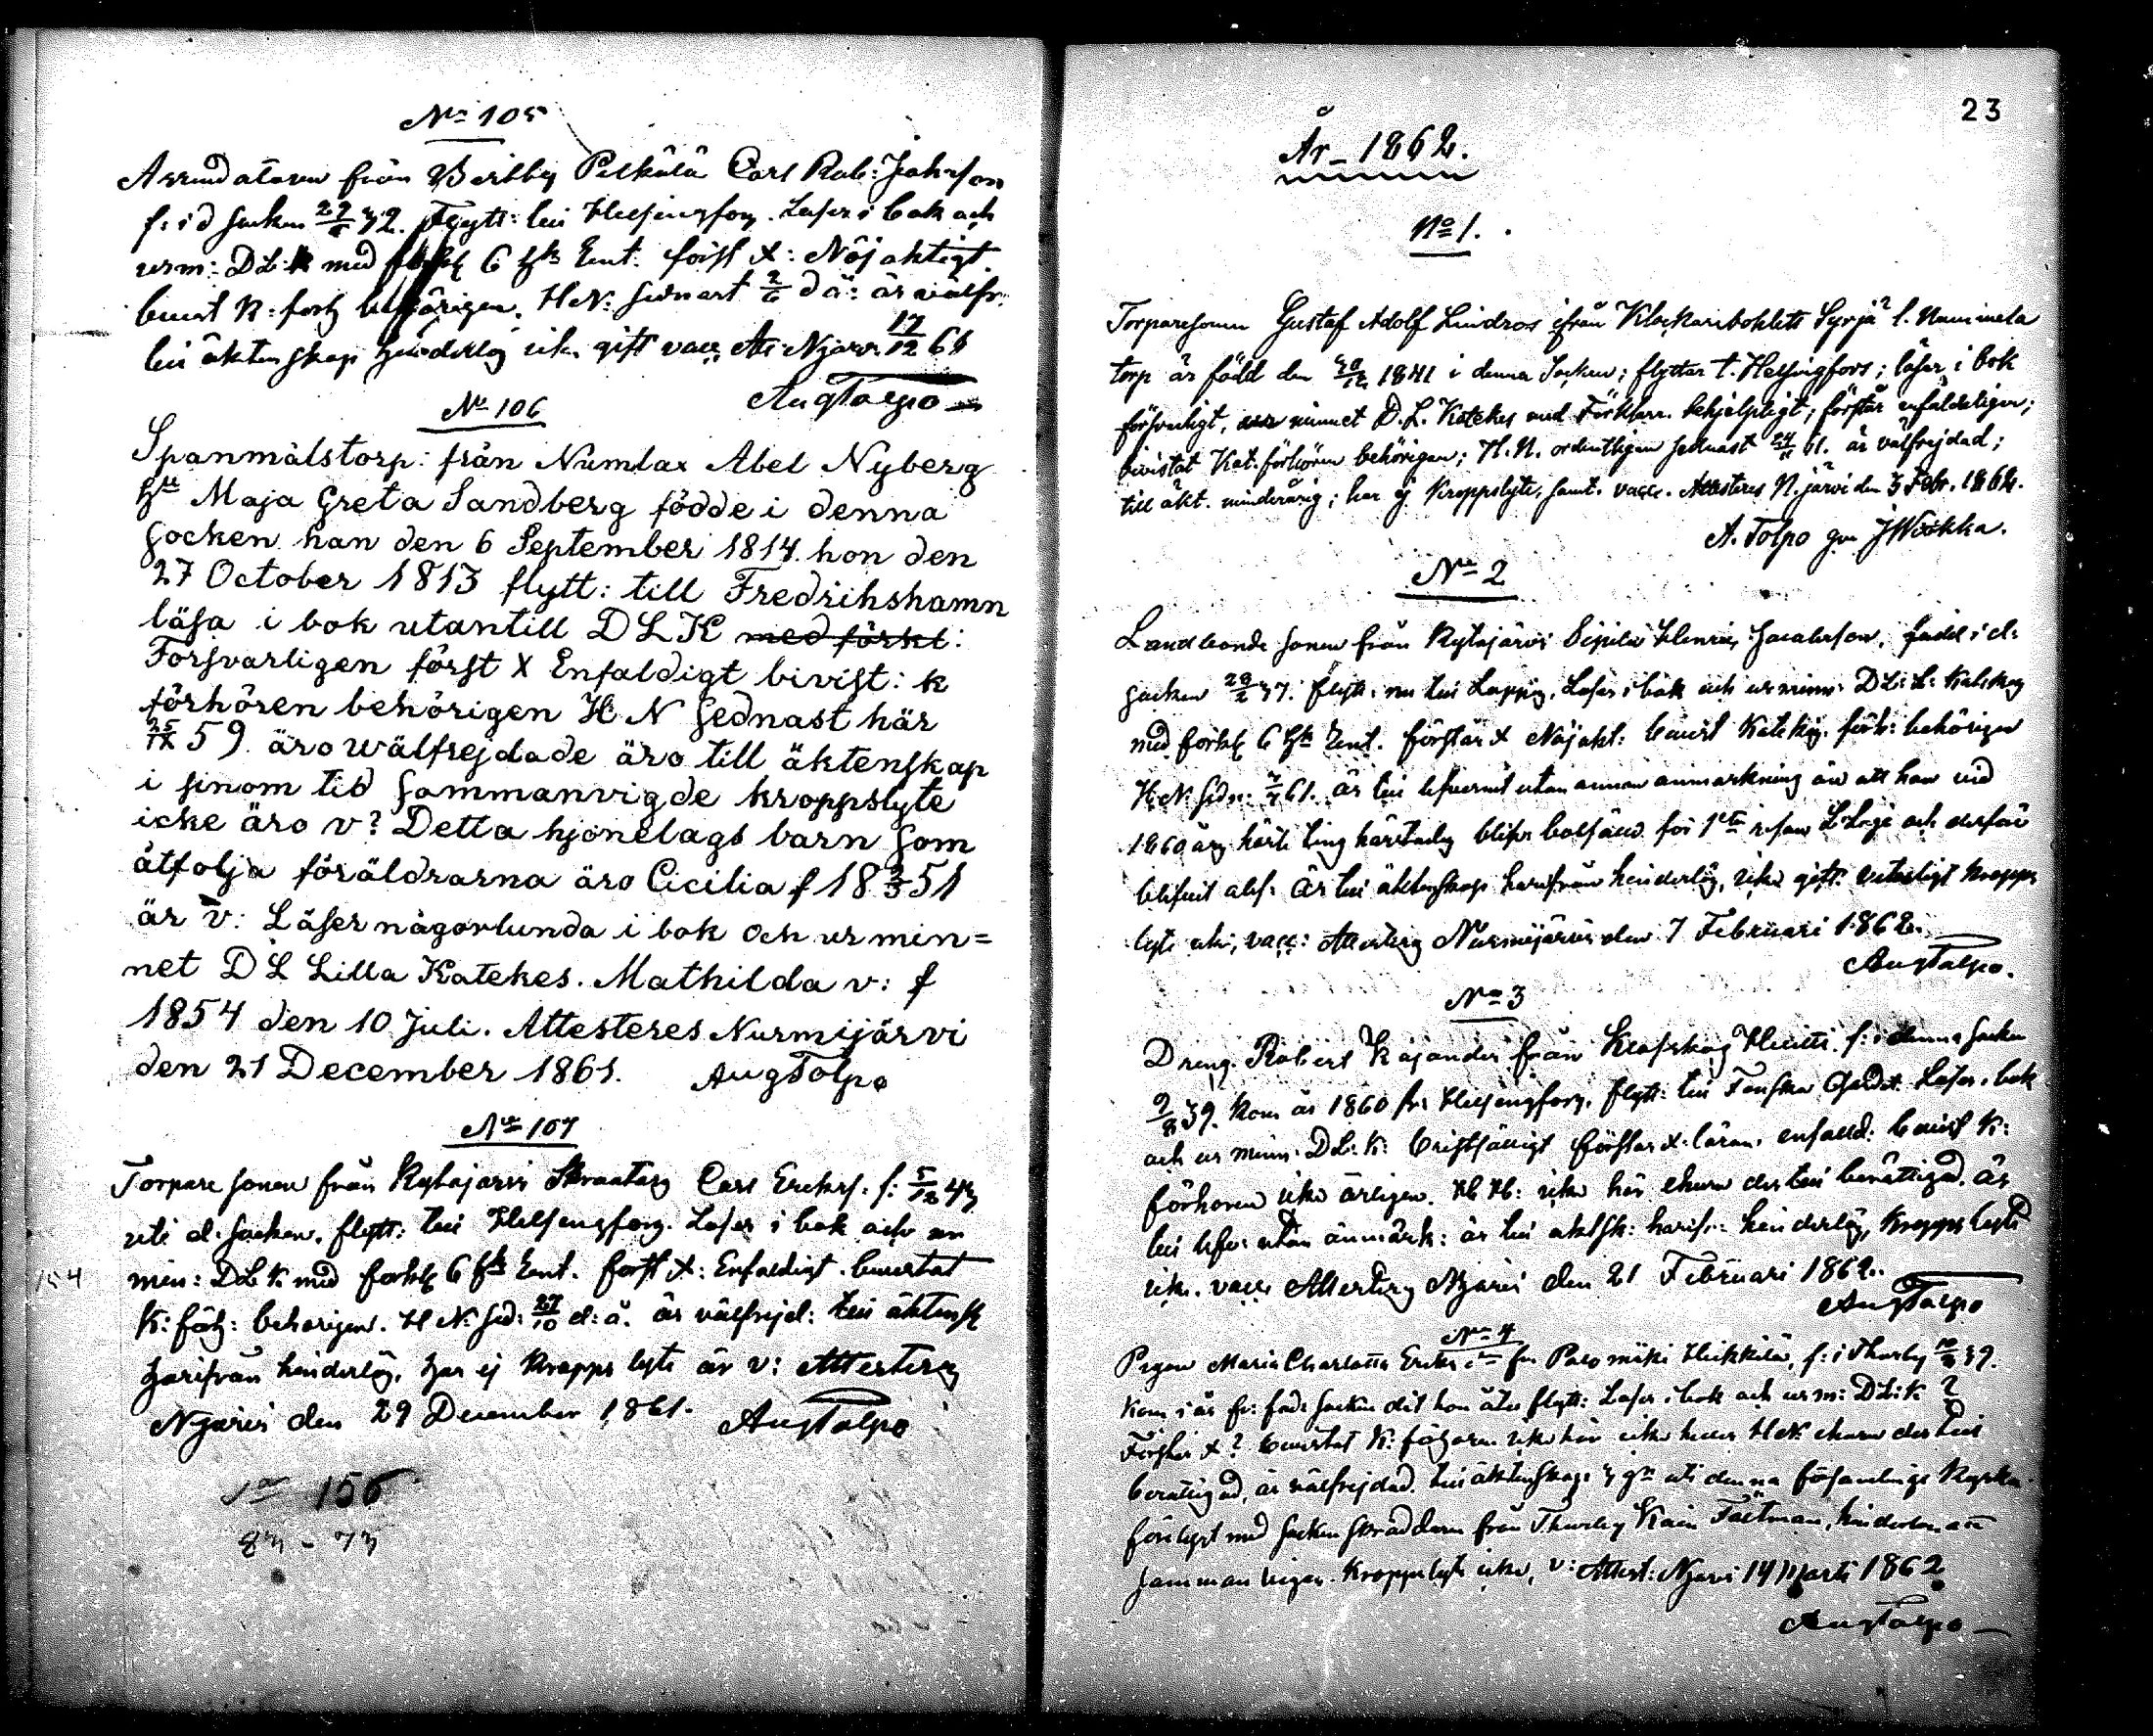 No 105
Arrendatoren från Perttby Pelkälä Carl Rob: Johnson
f: i d Socken 32. Flytt: till Helsingfors. Läser i bok och
urm: DL: K med 6 Ent. först X: Nöjaktigt.
bivist K: förh behörigen. HN: sednast 2/6 d å: är välfr:
till äktenskap hinderlös icke gift vacc Att: Njärvi 17/12 61
AugTolpo
No 106
Spanmålstorp: från Numlax Abel Nyberg
Maja Greta Sandberg födde i denna
Socken han den 6 September 1814 hon den
27 October 1813 flytt: till Fredrikshamn
läsa i bok utantill D L K med förkl:
Försvarligen först X Enfaldigt bivist: k
förhören behörigen H N sednast här
25/IX 59 äro wälfrejdade äro till äktenskap
i sinom tid sammanvigde kroppslyte
icke äro v? Detta hjonelags barn som
åtfölja föräldrarna äro Cicilia f 18 2/3 51
är v: Läser någorlunda i bok och ur min=
net D L Lilla Katekes. Mathilda v: f
1854 den 10 Juli. Attesteres Nurmijärvi
den 21 December 1861. AugTolpo
No 107
Torpare sonen från Kytäjärvi Carl Eriks: f: 5/12 43
uti d. socken, flytt: till Helsingfors. Läser i bok och ur
min: DL K med förkl 6 Ent. först X: Enfaldigt. bivistat
154
K: förh: behörigen. H N: sed: 27/10 d: å. är välfrejd: till äktensk
härifrån hinderlös, har ej kroppslyte är v: Attesteres
Njärvi den 29 December 1861. AugTolpo
156
83 - 73
23
År 1862.
No 1.
Torparesonen Gustaf Adolf Lindroos ifrån Klockarebohlets Syrjä l. Nummela
torp är född den 1841 i denna Socken; flyttar t. Helsingfors; läser i bok
försvarligt, ur minnet D. L. Katekes med Förklarn. behjelpligt; förstår enfaldeligen;
bivistat Kat. förhören behörigen; H. N. ordentligen sednast 24/11 61. är välfrejdad;
till äkt. minderårig; har ej kroppslyte, samt. vacc. Attesteres N. järvi den 3 Febr. 1862.
A. Tolpo gm
No 2
Landbonde sonen från Kytäjärvi Sipilä Henric Jacobsson, född i d:
Socken 37. flytt: nu till Loppis. Läser i bok och ur minn: DL: L: Katekes
med förkl 6 Ent. förstår X Nöjakt: bivist Katekis. förh: behörigen
H: N: sedn: 61. är till lefvernet utan annan anmärkning än att han vid
1860 års höste ting härstädes för 1sta resan
blifvit är till äktenskap härifrån hinderlös, icke gift. veterligt kropps
lyte icke, vacc: Attesteres Nurmijärvi den 7 Februari 1862.
AugTolpo.
No 3
Dreng. Robert Kajander från Klofskog Heutti f: i denna Socken
9/8 39. kom år 1860 fr: Helsingfors, flytt: till Finska Gardet. Läser i bok
och ur minn: DL: K: bristfälligt förstår X: läran: enfald: bivist K:
förhören icke årligen. icke här ehuru dertill berättigad. är
till lefv: utan anmärk: är till aktsk: härifr: hinderlös, kroppslyte
icke. vacc Attesteres Njärvi den 21 Februari 1862.
AugTolpo
No 4
Pigan Maria Charlotta Eriks fr Palomäki Heikkilä, f: i Thusby 39.
kom i år fr: föd: socken dit hon åter flytt: Läser i bok och ur m: DL: K ?
Förstår X? bivistat K: förhören icke här icke heller HN ehuru dertill
berättigad, är välfrejdad. till äktenskap 3 gr uti denna församlings Kyrka
förelyst med socken skräddaren från Thusby hinderlös att
sammanvigas. Kroppslyte icke, v: Attest: Njärvi 14 Marti 1862
AugTolpo